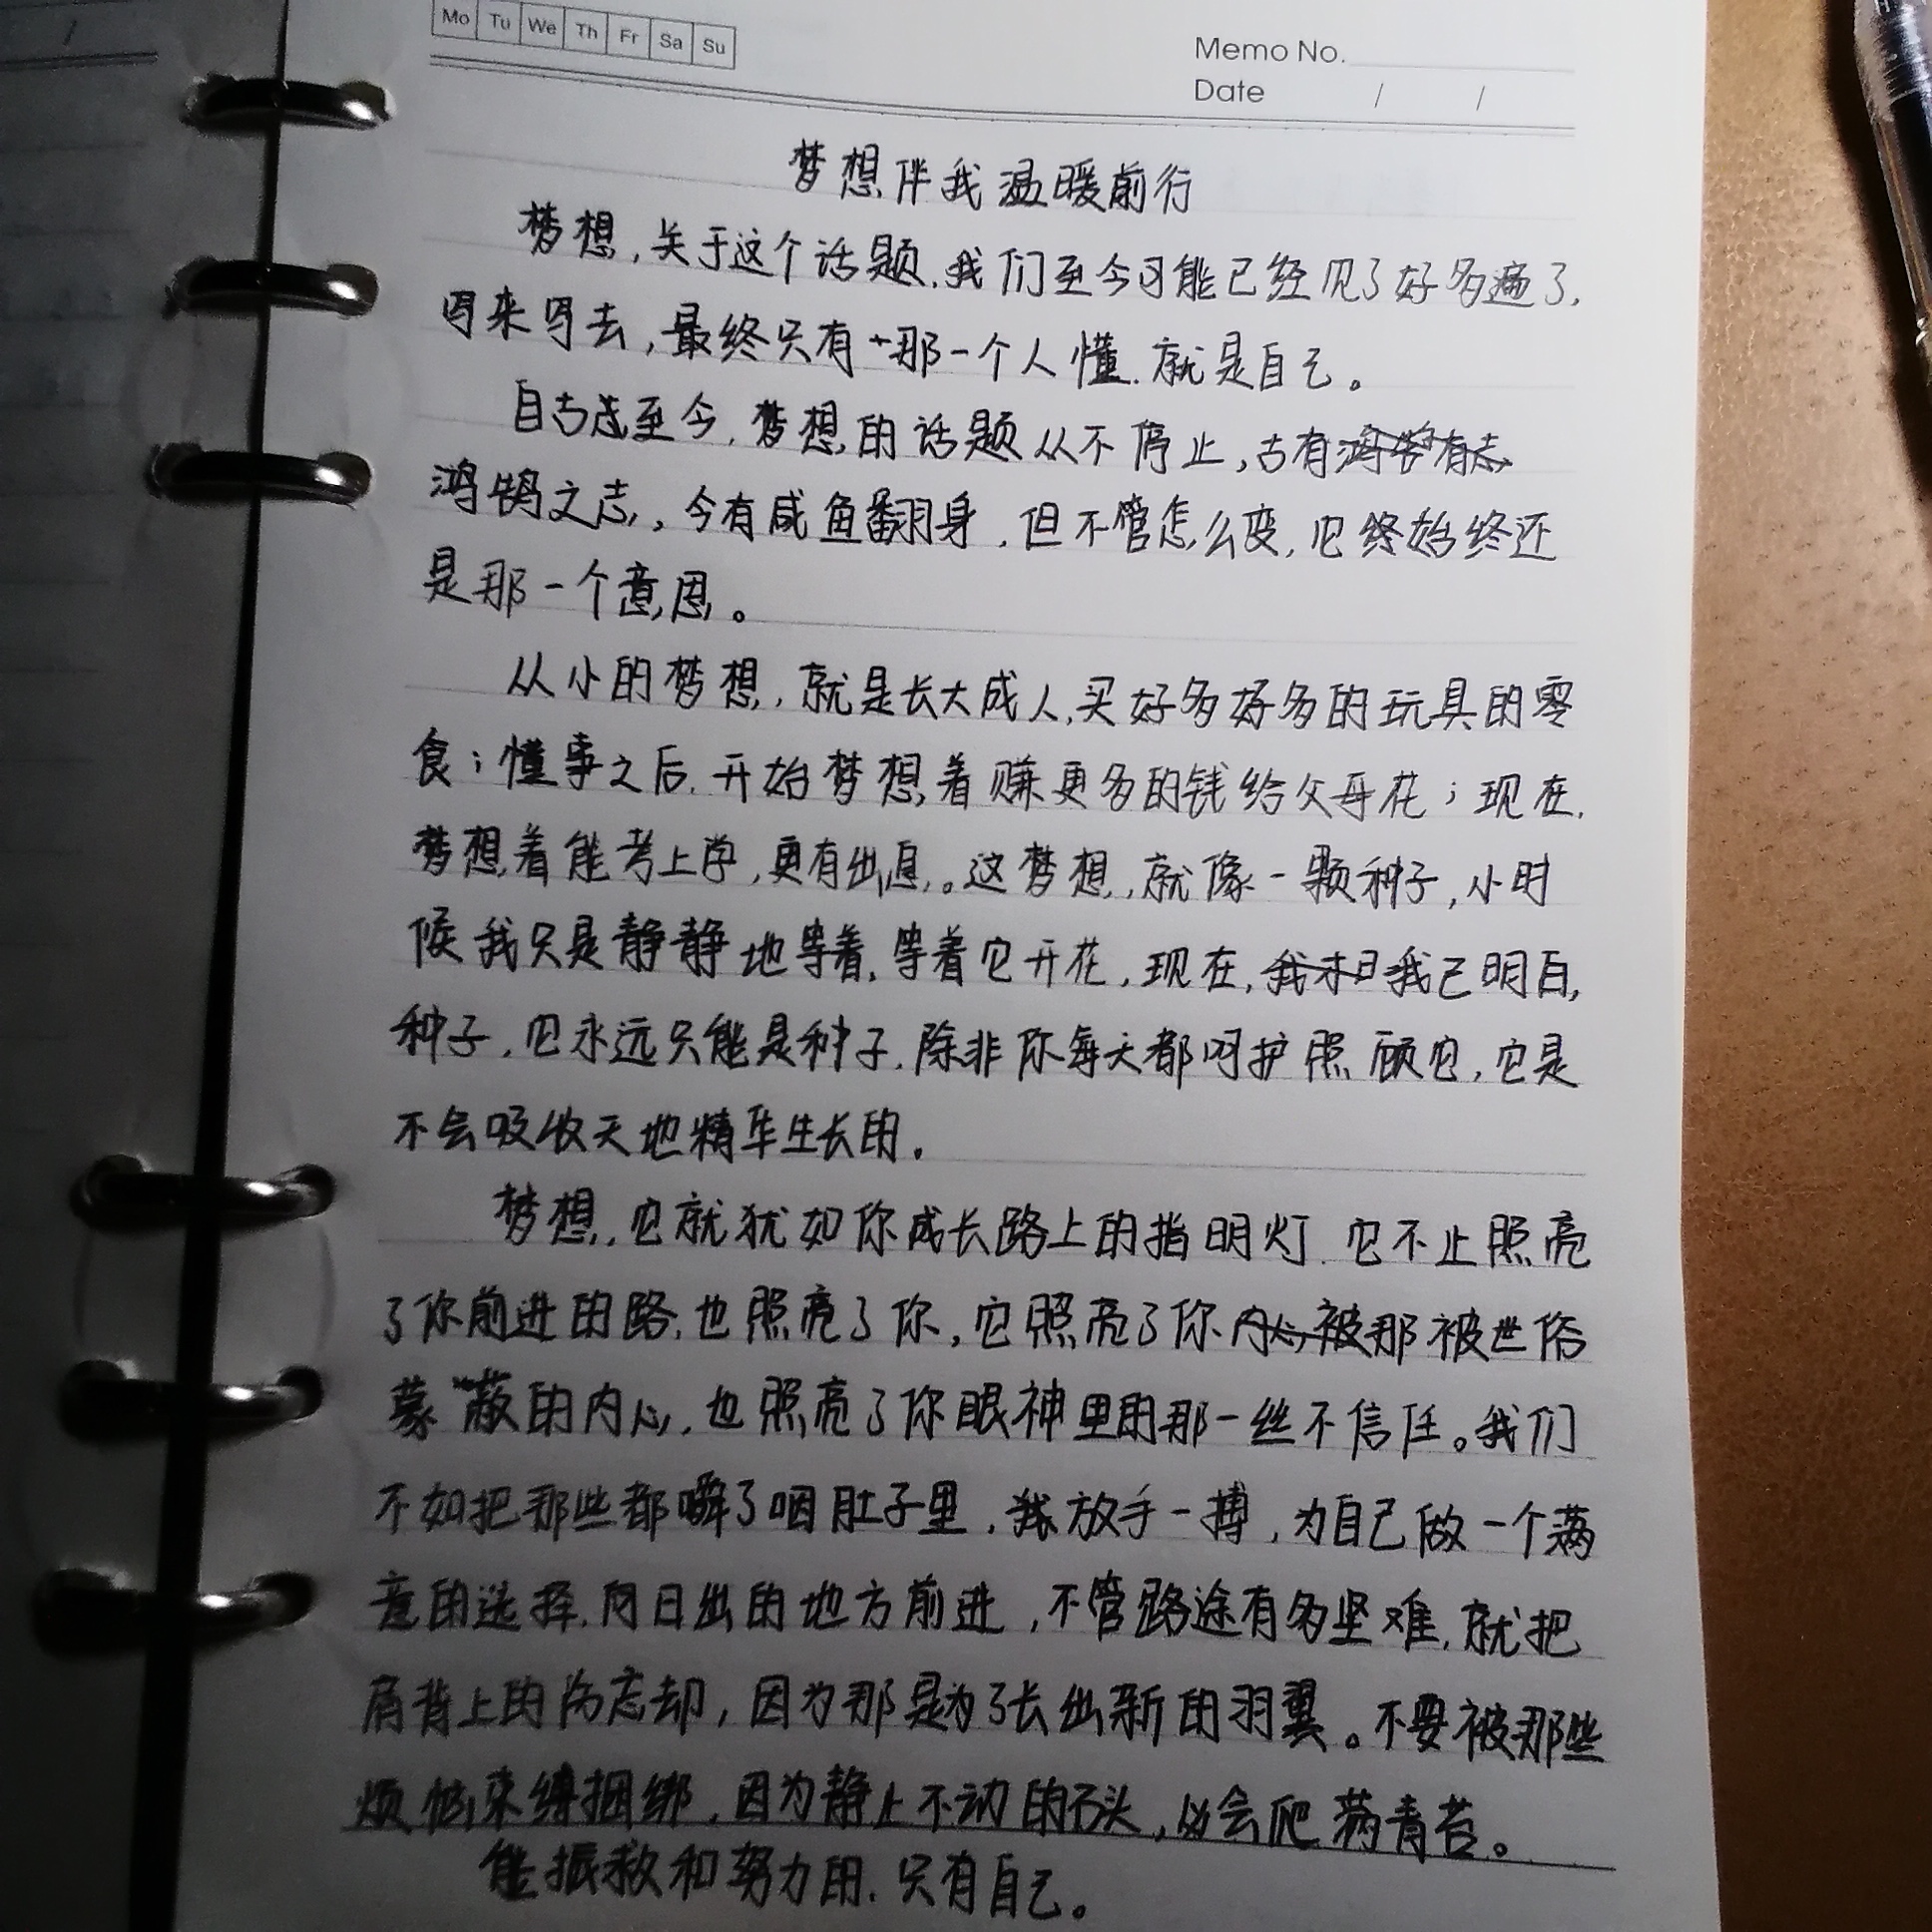 Mo Tu We Th Fr Sa Su
Memo No.
Date / /
梦想伴我温暖前行
梦想,关于这个话题,我们至今可能已经见了好多遍了,
写来写去,最终只有那一个人懂,就是自己。
自古至今,梦想的话题从不停止,古有
鸿鹄之志,今有咸鱼翻身,但不管怎么变,它终始终还
是那一个意思。
从小的梦想,就是长大成人,买好多好多的玩具的零
食;懂事之后,开始梦想着赚更多的钱给父母花;现在,
梦想着能考上学,更有出息。这梦想,就像一颗种子,小时
候我只是静静地等着,等着它开花,现在,我已明白,
种子,它永远只能是种子,除非你每天都呵护照顾它,它是
不会吸收天地精华生长的。
梦想,它就犹如你成长路上的指明灯,它不止照亮
了你前进的路,也照亮了你,它照亮了你那被世俗
蒙蔽的内心,也照亮了你眼神里的那一丝不信任。我们
不如把那些都嚼了咽肚子里,放手一搏,为自己做一个满
意的选择,向日出的地方前进,不管路途有多坚难,就把
肩背上的伤忘却,因为那是为了长出新的羽翼。不要被那些
烦恼束缚捆绑,因为静止不动的石头,必会爬满青苔。
能振救和努力的,只有自己。